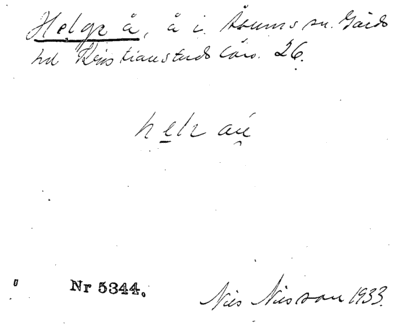 Helge å, å i. Åsums sn. Gärds
hd Kristianstads län. 26.
Nr 5344.
Nils Nilsson 1933.